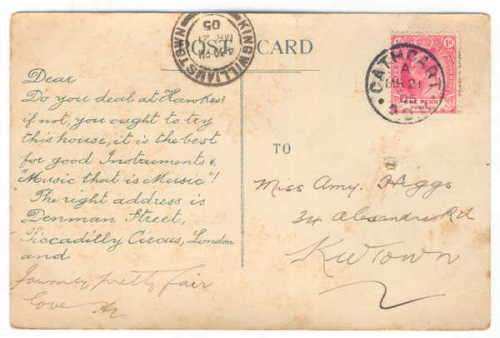 POST CARD
KINGWILLIAMSTOWN
05
CATHCART
A
MR 21
05
ONE PENNY
Dear
Do you deal at Hawkes'
if not, you ought to try
this house, it is the best
for good Instruments &
"Music that is Music"!
The right address is
Denman Street,
Piccadilly Circus, London
and
Journey pretty fair
love
TO
Miss Amy Higgs
34 Alexandra Rd
KWTown